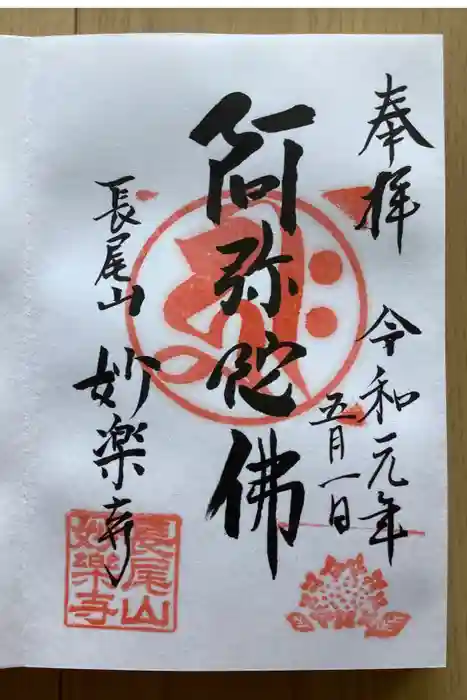 奉拝
令和元年
五月一日
阿弥陀佛
長尾山
妙楽寺
長尾山
妙樂寺